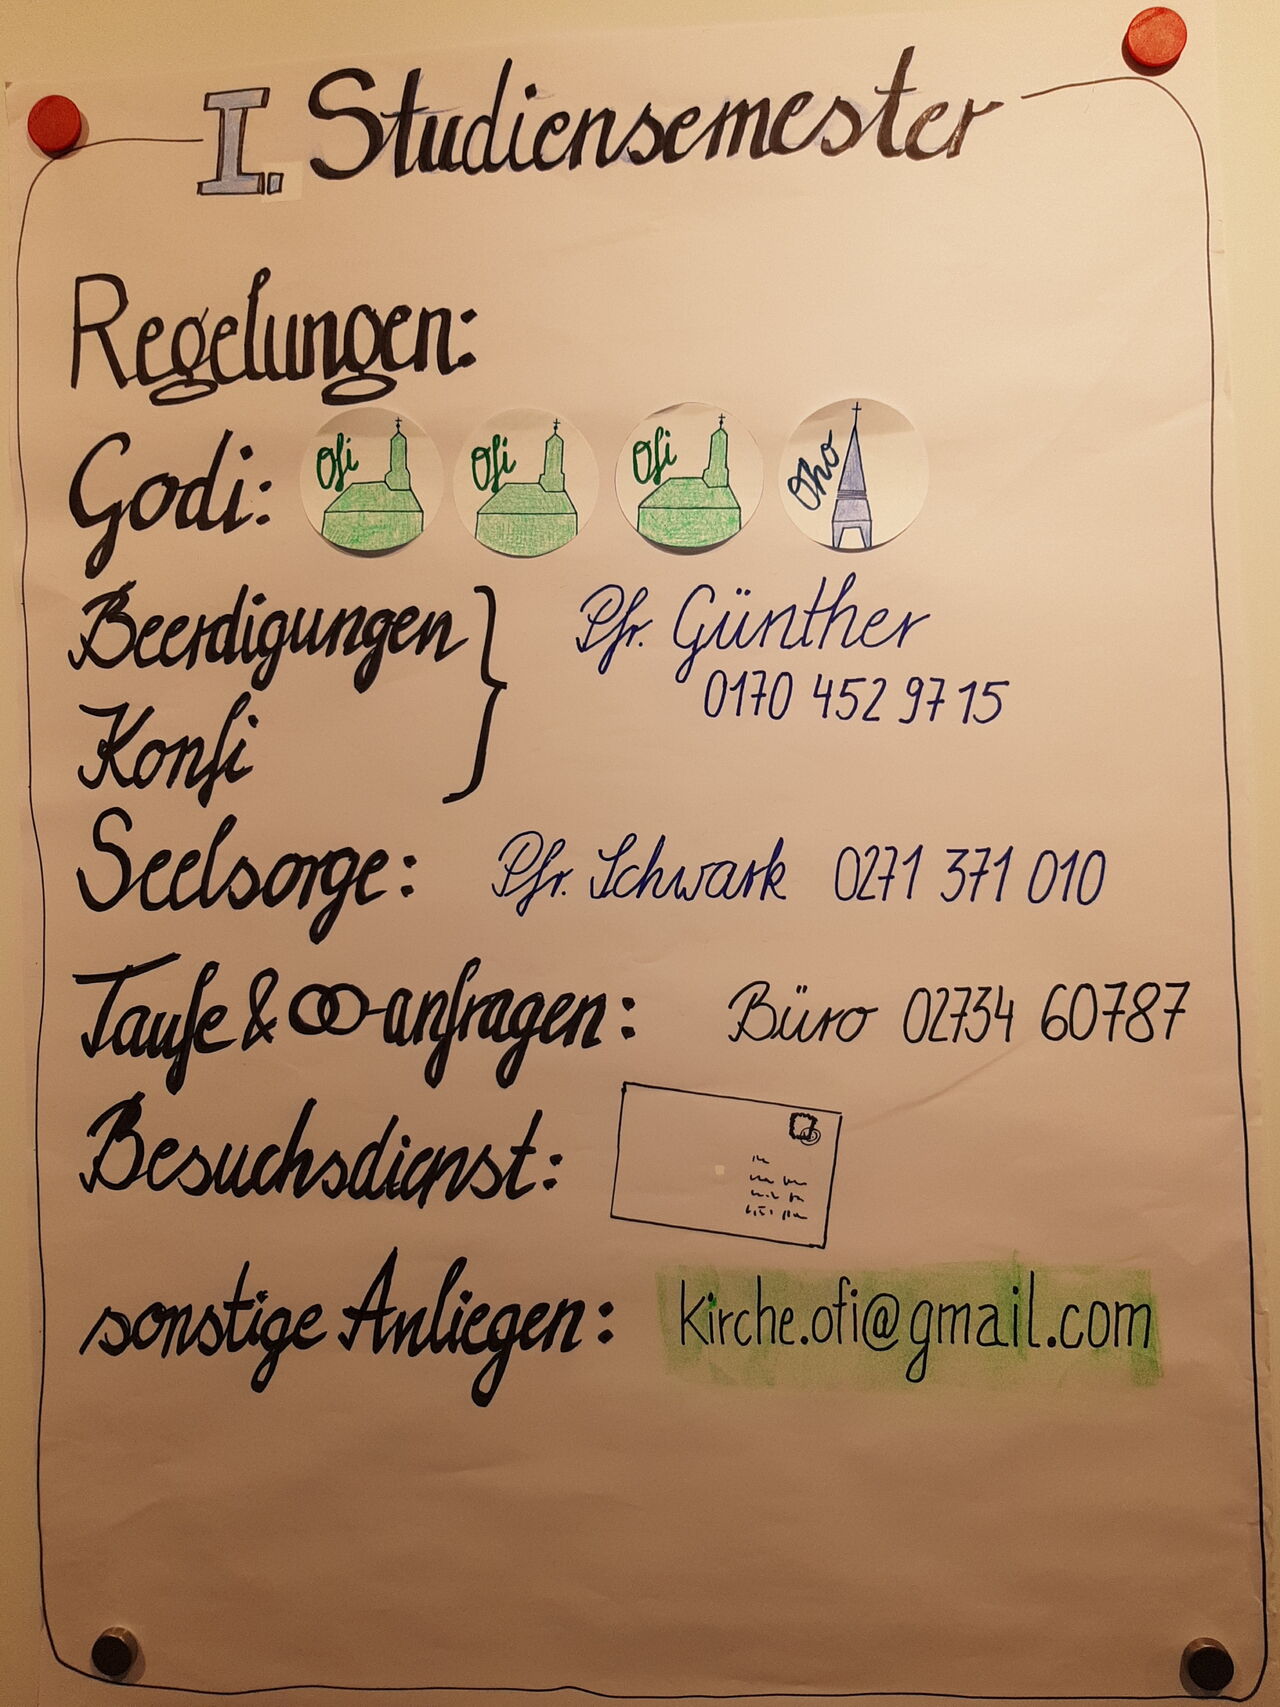 I. Studiensemester
Regelungen:
Godi: Ofi Ofi Ofi Oho
Beerdigungen
Pfr. Günther
0170 452 97 15
Konfi
Seelsorge: Pfr. Schwark 0271 371 010
Taufe & -anfragen: Büro 02734 60787
Besuchsdienst:
sonstige Anliegen: kirche.ofi@gmail.com